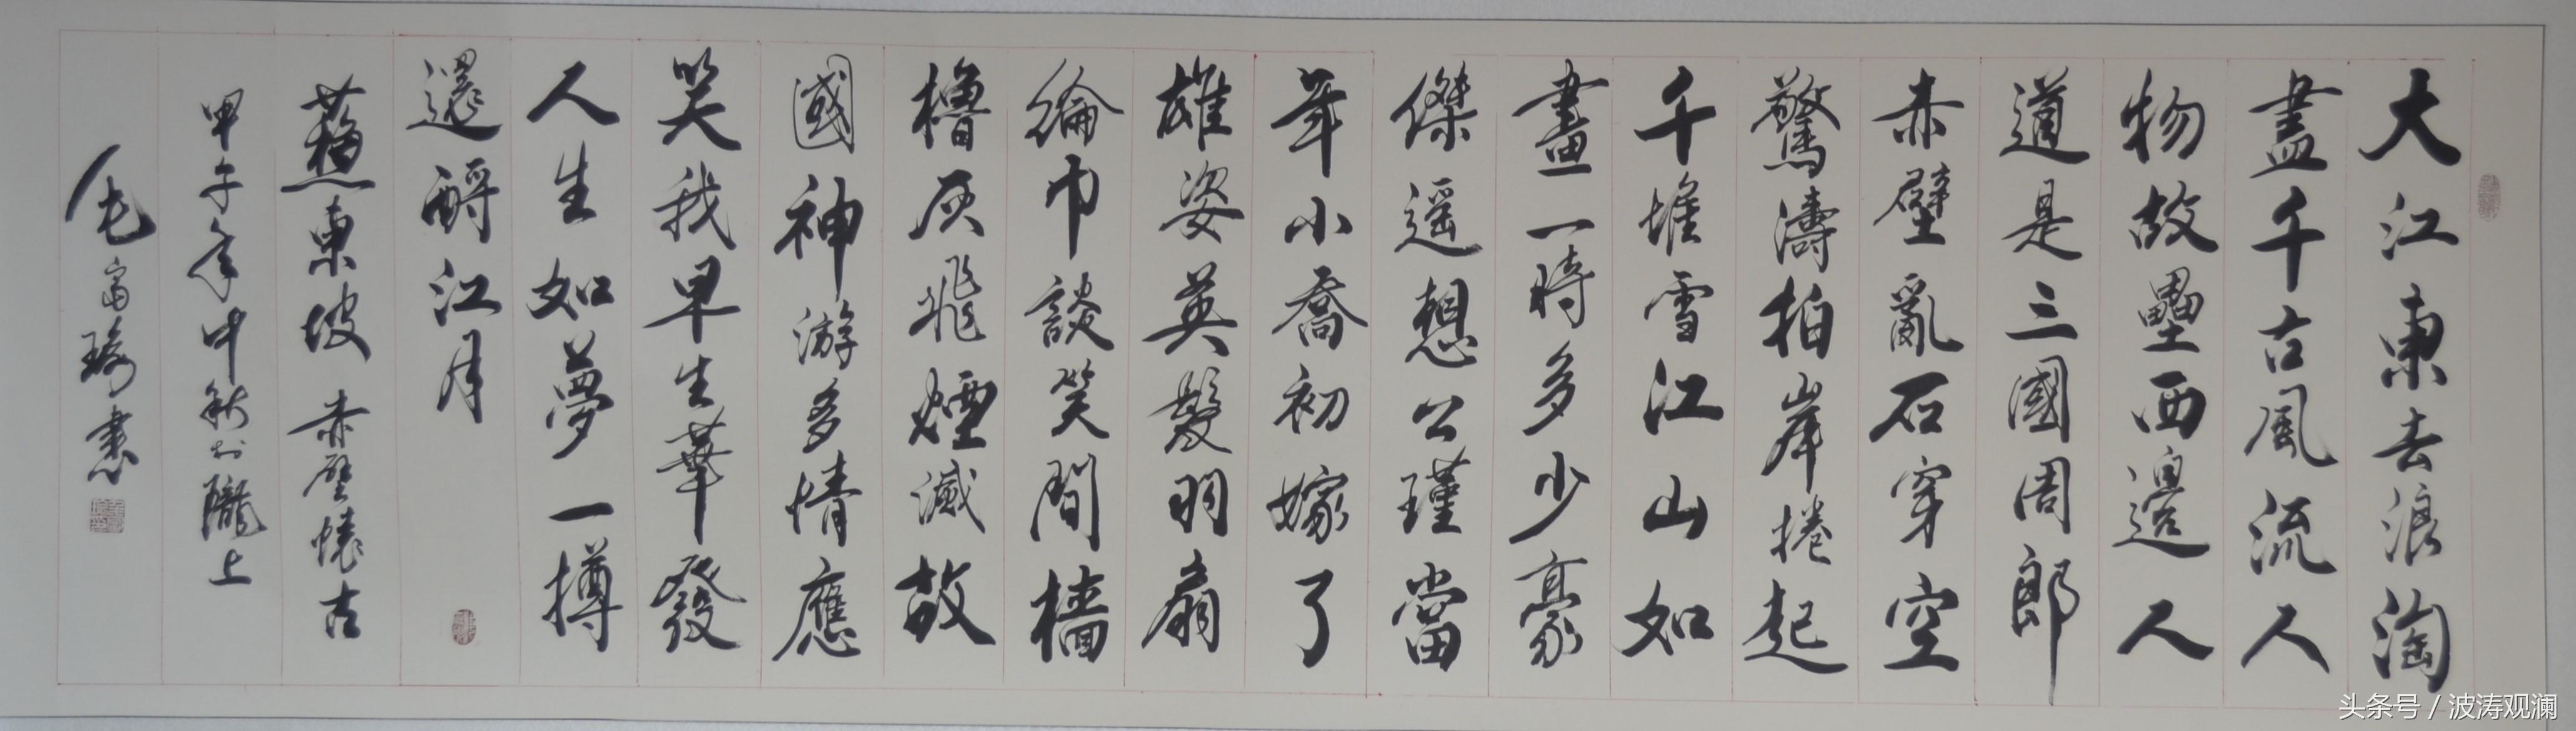 大江東去浪淘
盡千古風流人
物故壘西邊人
道是三國周郎
赤壁亂石穿空
驚濤拍岸捲起
千堆雪江山如
畫一時多少豪
傑遥想公瑾當
年小喬初嫁了
雄姿英發羽扇
綸巾談笑間檣
櫓灰飛煙滅故
國神游多情應
笑我早生華發
人生如夢一撙
還酹江月
蘇東坡 赤壁懷古
甲午年中秋於隴上
毛富瑜書
头条号 / 波涛观澜